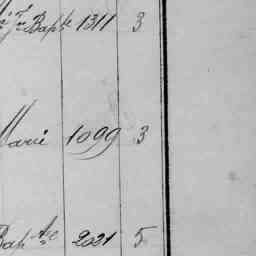 Jn Bapte 1311 3
Marie 1099 3
Bapte 2021 5